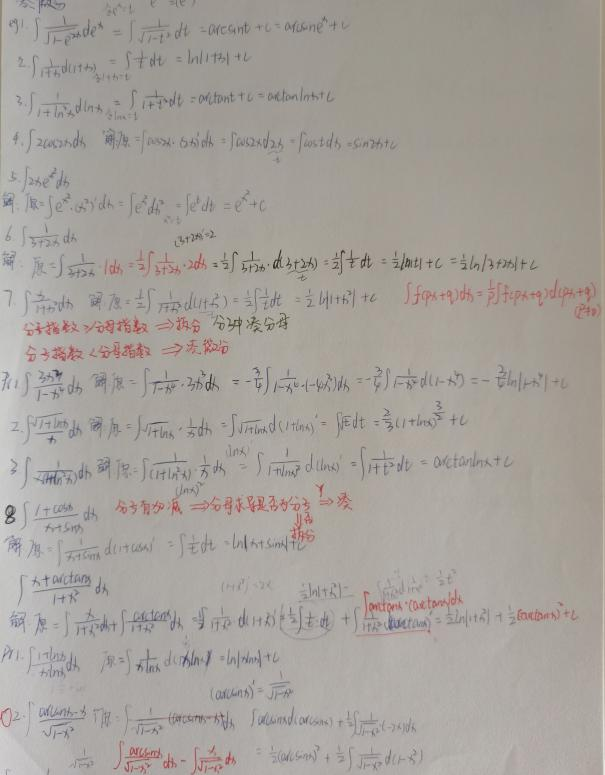 eg1. ∫ 1/√(1-e^{2x}) de^x = ∫ 1/√(1-t²) dt = arcsint + C = arcsine^x + C
2. ∫ 1/(1+x) d(1+x) = ∫ 1/t dt = ln|1+x| + C
令1+x=t
3. ∫ 1/(1+ln²x) dlnx = ∫ 1/(1+t²) dt = arctant + C = arctanlnx + C
令lnx=t
4. ∫2cos2xdx 解:原=∫cos2x·(2x)'dx = ∫cos2xd2x = ∫costdx = sin2x+C
5. ∫2xe^{x²}dx
解:原=∫e^{x²}·(x²)'dx = ∫e^{x²}dx² = ∫e^t dt = e^{x²}+C
6. ∫ 1/(3+2x) dx (3+2x)'=2
解:原=∫ 1/(3+2x) ·1dx = 1/2 ∫ 1/(3+2x) ·2dx = 1/2 ∫ 1/(3+2x) ·d(3+2x) = 1/2 ∫ 1/t dt = 1/2 ln|t| + C = 1/2 ln|3+2x| + C
7. ∫ x/(1+x²) dx 解:原=1/2 ∫ 1/(1+x²) d(1+x²) = 1/2 ∫ 1/t dt = 1/2 ln|1+x²| + C ∫f(px+q)dx = 1/p ∫f(px+q)d(px+q)
(p≠0)
分子指数≥分母指数 ⇒拆分 分子中凑分母
分子指数<分母指数 ⇒凑微分
1. ∫ 3x³/(1-x⁴) dx 解:原=∫ 1/(1-x⁴) ·3x³dx = -3/4 ∫ 1/(1-x⁴) ·(-4x³)dx = -3/4 ∫ 1/(1-x⁴) d(1-x⁴) = -3/4 ln|1-x⁴| + C
2. ∫ √(1+lnx)/x dx 解:原=∫√(1+lnx) · 1/x dx = ∫√(1+lnx) d(1+lnx) = ∫√t dt = 2/3 (1+lnx)^{3/2} + C
3 ∫ 1/(x(1+ln²x)) dx 解:原=∫ 1/(1+ln²x) · 1/x dx = ∫ 1/(1+lnx²) d(lnx) = ∫ 1/(1+t²) dt = arctanlnx + C
(lnx)'
(lnx)²
8 ∫ (1+cosx)/(x+sinx) dx 分子有加减 ⇒分母求导是否为分子 ⇒ 凑
Y
⇓否
拆分
解 原=∫ 1/(x+sinx) d(1+cosx) = ∫ 1/t dt = ln|x+sinx|+C
∫ (x+arctanx)/(1+x²) dx (1+x²)'=2x
解:原=∫ x/(1+x²) dx + ∫ arctanx/(1+x²) dx = 1/2 ∫ 1/(1+x²) d(1+x²)
∫arctanx·(arctanx)'dx
= 1/2 ln|1+x²| + 1/2 (arctanx)² + C
1. ∫ (1+lnx)/(xlnx) dx 原=∫ 1/(xlnx) d(xlnx) = ln|xlnx| + C
(arcsinx)' = 1/√(1-x²)
2. ∫ (arcsinx-x)/√(1-x²) 原=∫ 1/√(1-x²) (arcsinx-x)dx ∫arcsinxd(arcsinx) + 1/2 ∫ 1/√(1-x²) (-2x)dx
∫ arcsinx/√(1-x²) dx - ∫ x/√(1-x²) dx = 1/2 (arcsinx)² + 1/2 ∫ 1/√(1-x²) d(1-x²)